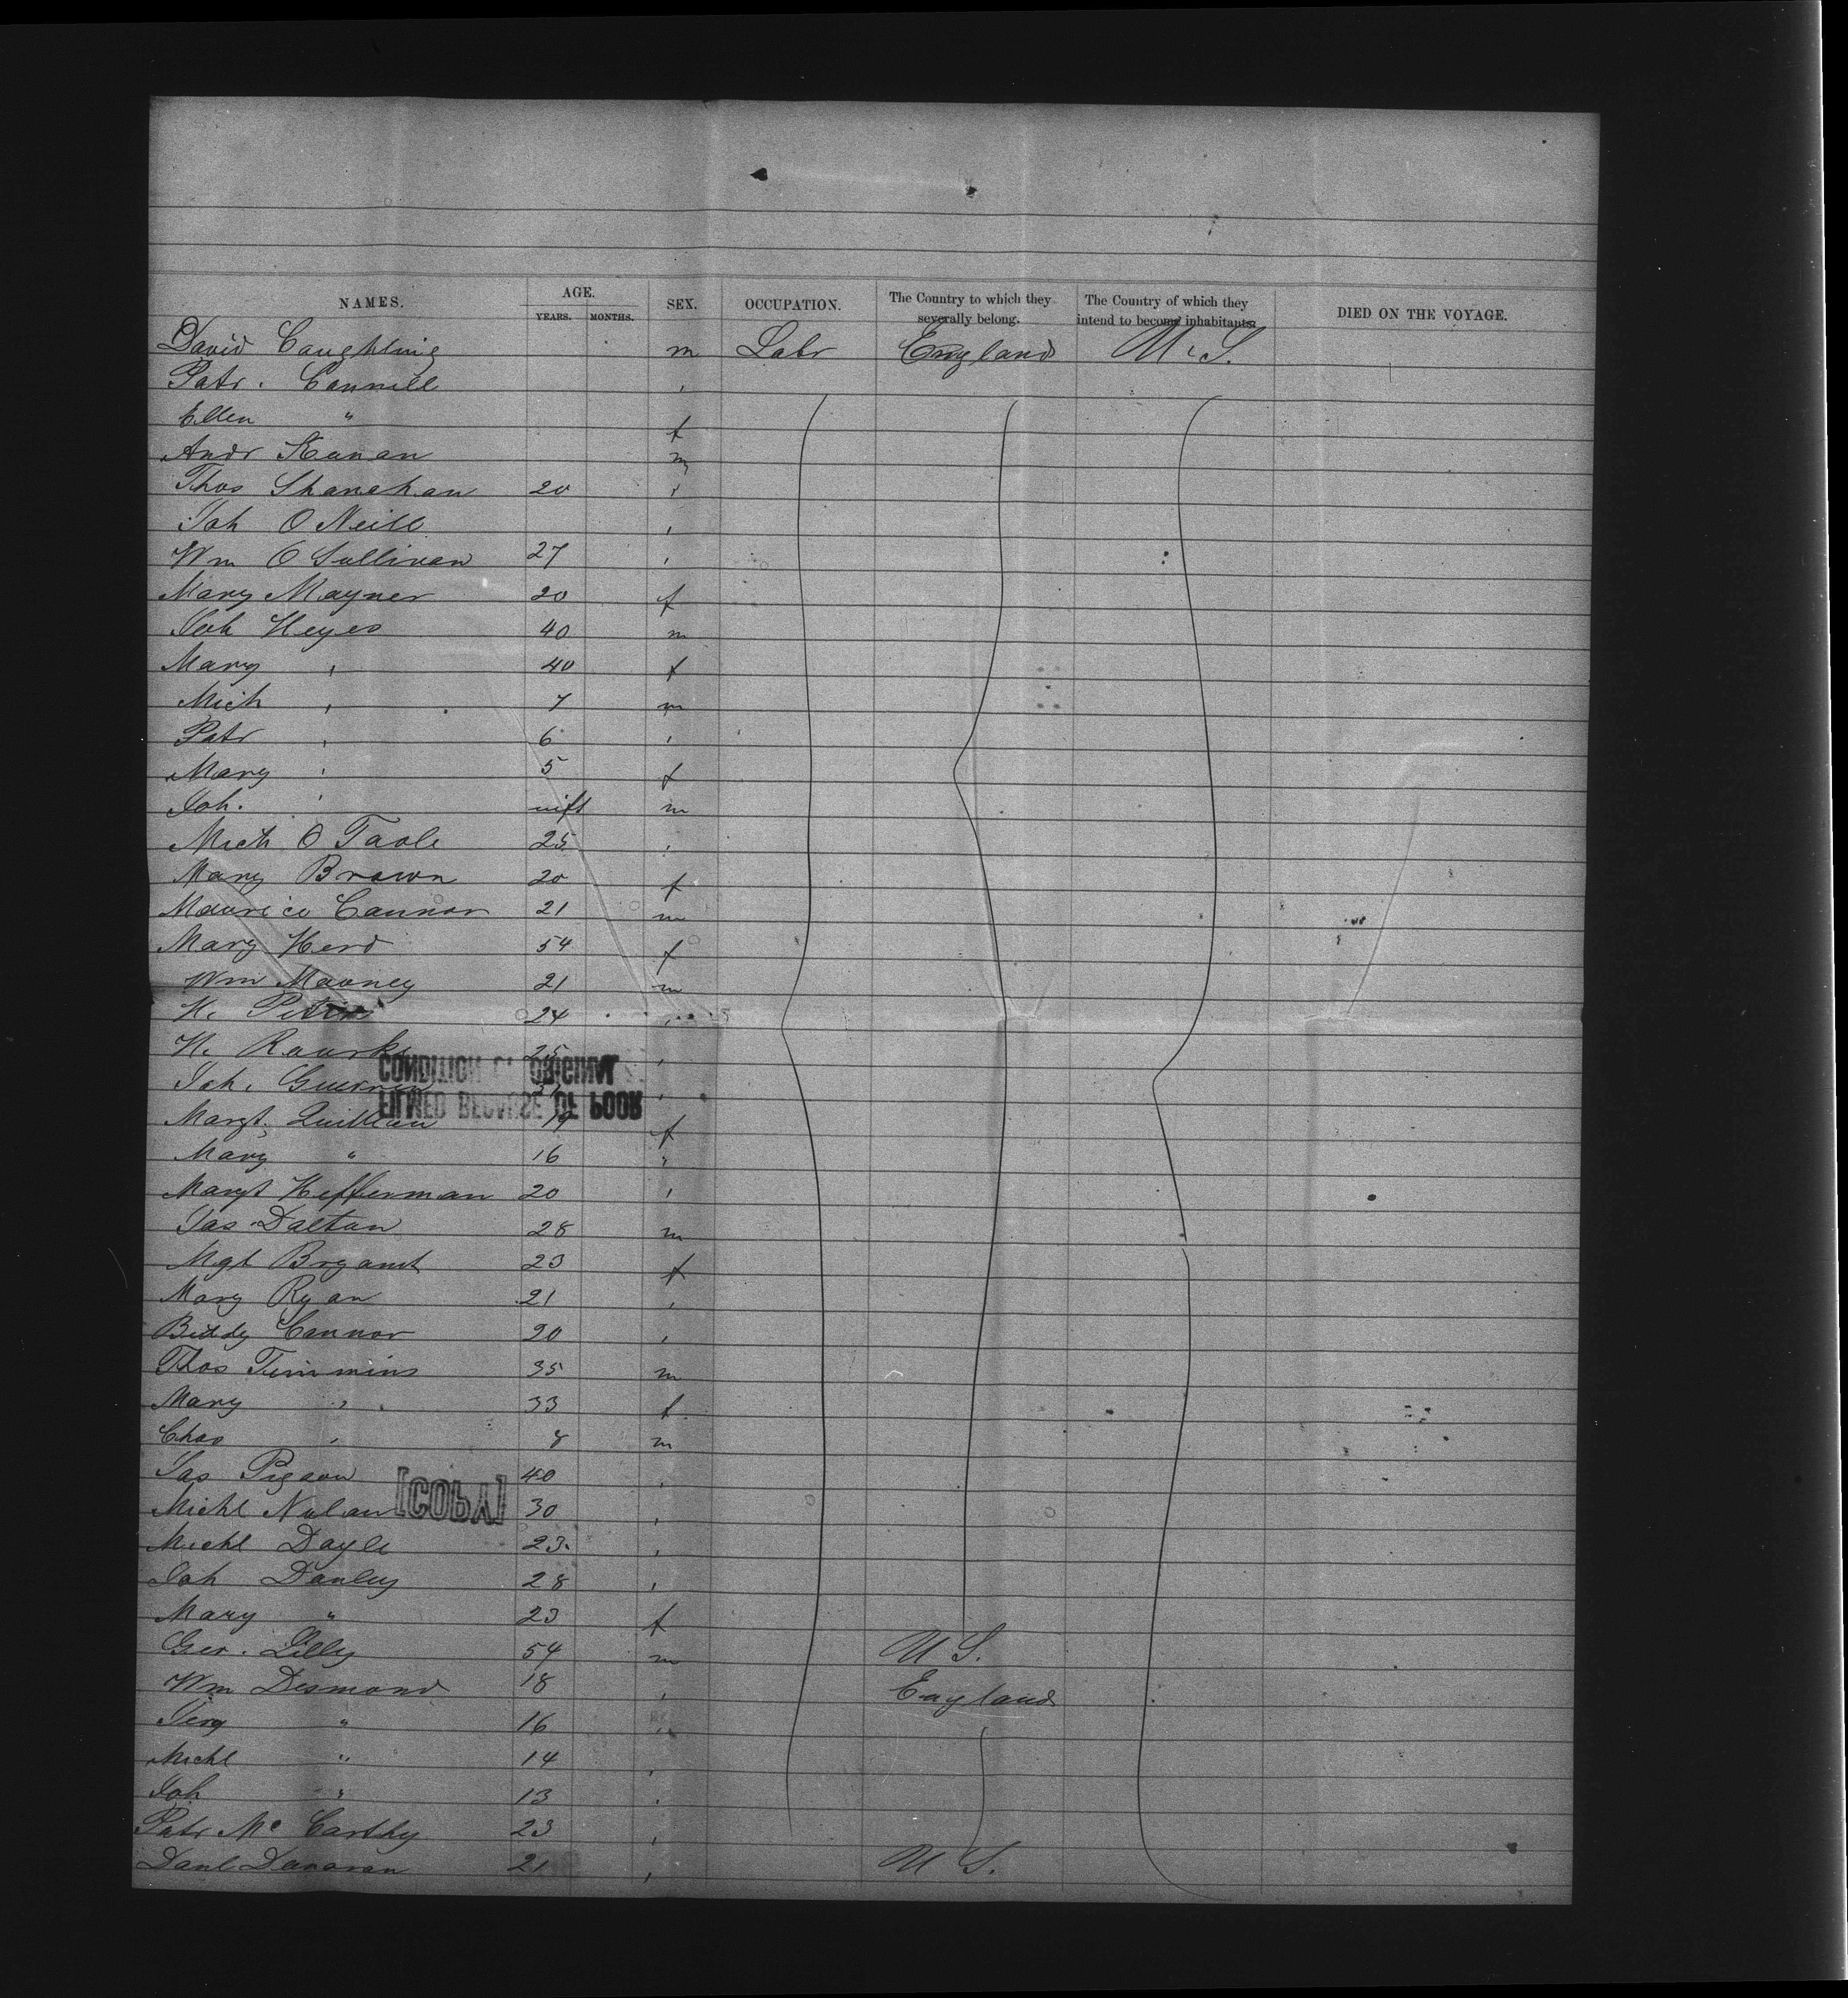 NAMES. AGE. SEX. OCCUPATION. The Country to which they severally belong. The Country of which they intend to become inhabitants. DIED ON THE VOYAGE.
YEARS. MONTHS.
David Caughling m Labr England U.S.
Patr. Connell ,
Ellen " f
Andr Kanan m
Thos Shanahan 20 ,
Joh O Neill ,
Wm O Sullivan 27 ,
Mary Mayner 20 f
Joh Heyes 40 m
Mary , 40 f
Mich , 7 m
Patr , 6 ,
Mary , 5 f
Joh. , inft m
Mich O Toole 25 ,
Mary Brown 20 f
Maurice Connor 21 m
Mary Herd 54 f
Wm Mooney 21 m
H. 24 ,
H. Rourke 25 ,
CONDITION OF ORIGINAL
Joh. ,
FILMED BECAUSE OF POOR
Margt. Quillean 19 f
Mary " 16 "
Margt Hefferman 20 ,
Jas Dalton 28 m
Mgt Bryant 23 f
Mary Ryan 21 ,
Biddy Connor 20 ,
Thos Timmins 35 m
Mary , 33 f
Chas , 8 m
Jas Pigeon 40 ,
[COPY]
Michl Nolan 30 ,
Michl Doyle 23 ,
Joh Donley 28 ,
Mary " 23 f
Geo. Lilly 54 m U S.
Wm Desmond 18 , England
Jery " 16 "
Michl " 14 ,
Joh " 13 ,
Patr Mc Carthy 23 ,
Danl Donovan 21 , U S.